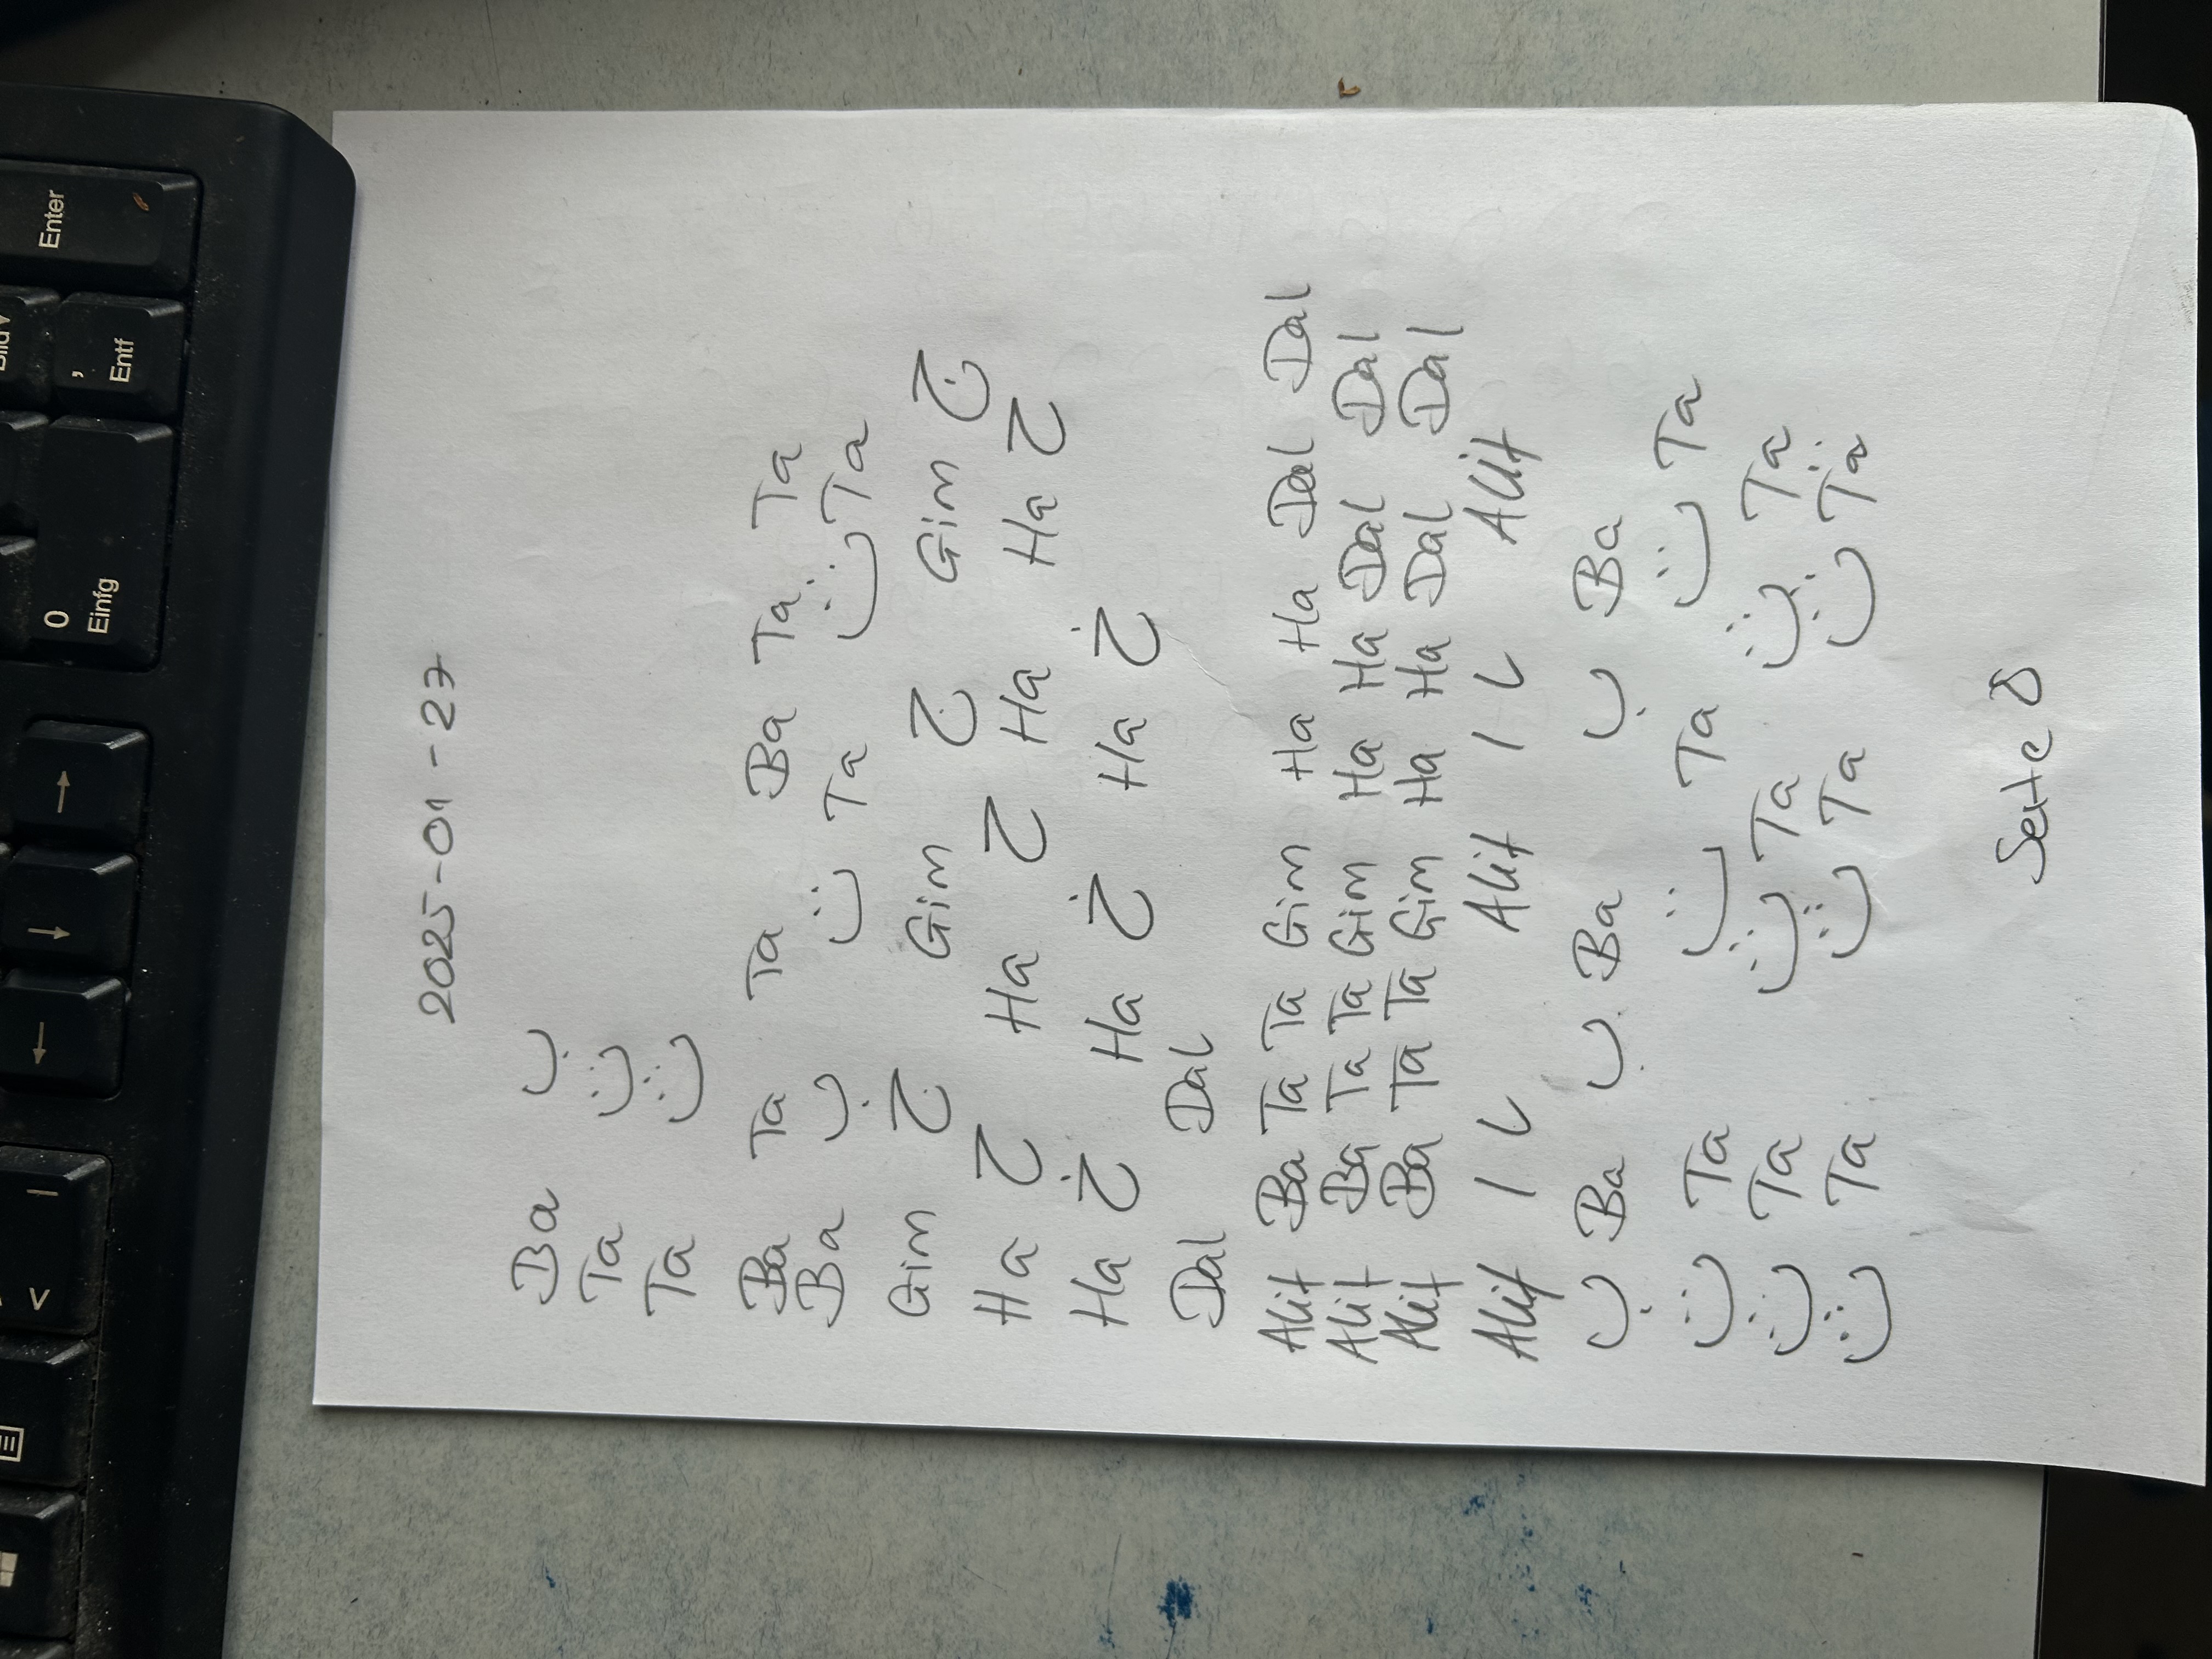 2025-01-27
Ba ب
Ta ت
Ta ث
Ba Ta Ta Ba Ta Ta
Ba ب ت Ta ث Ta
Gim ج Gim ح Gim ج
Ha ح Ha ح Ha Ha ح
Ha خ Ha خ Ha خ
Dal Dal
Alif Ba Ta Ta Gim Ha Ha Dal Dal
Alif Ba Ta Ta Gim Ha Ha Dal Dal
Alif Ba Ta Ta Gim Ha Ha Dal Dal
Alif ا ل Alif ا ل Alif
ب Ba ب Ba ب Ba
ت Ta ت Ta ت Ta
ت Ta ت Ta ت Ta
ث Ta ث Ta ث Ta
Seite 8
Enter
Entf
,
0
Einfg
→
↓
←